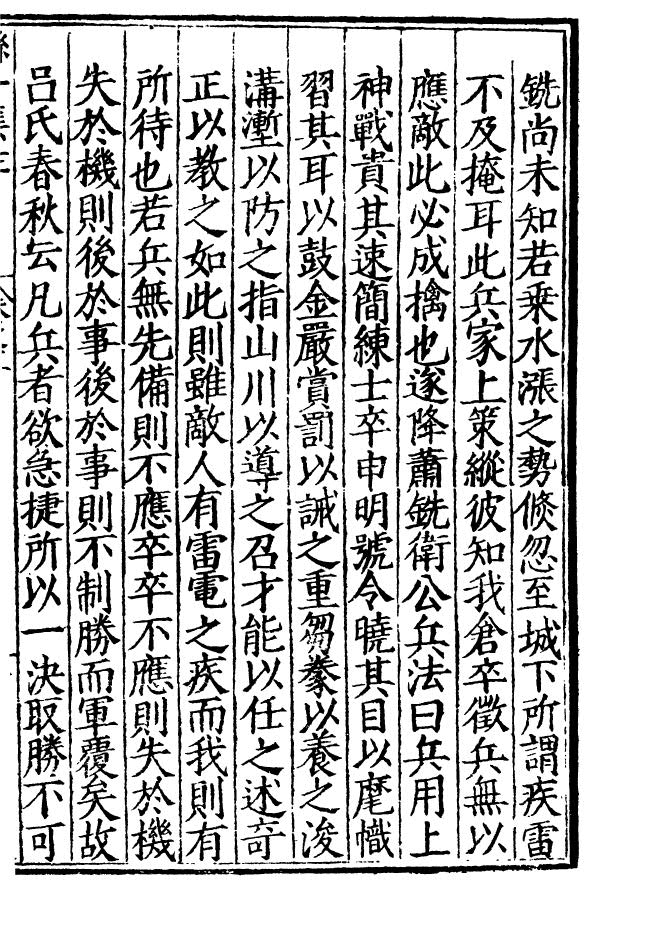 銑尚未知若乗水漲之勢倐忽至城下所謂疾雷
不及掩耳此兵家上策縱彼知我倉卒徵兵無以
應敵此必成擒也遂降蕭銑衛公兵法曰兵用上
神戰貴其速簡練士卒申明號令曉其目以麾幟
習其耳以鼓金嚴賞罰以誡之重芻豢以養之浚
溝壍以防之指山川以導之召才能以任之述竒
正以教之如此則雖敵人有雷電之疾而我則有
所待也若兵無先備則不應卒卒不應則失於機
失於機則後於事後於事則不制勝而軍覆矣故
吕氏春秋云凡兵者欲急捷所以一決取勝不可